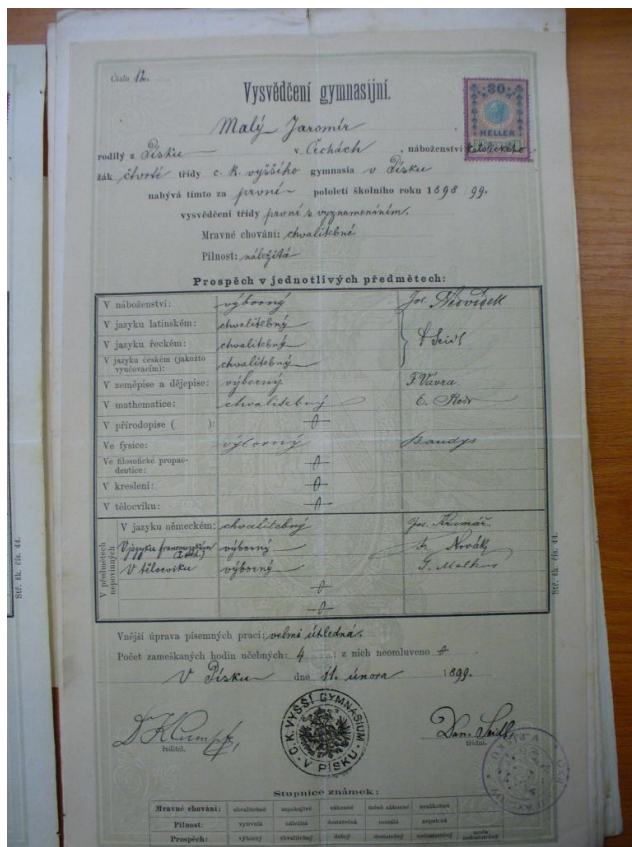 Číslo 12.
Vysvědčení gymnasijní.
30
HELLER
Malý Jaromír
rodilý z Písku v Čechách, náboženství katolického
žák čtvrté třídy c. k. vyššího gymnasia v Písku
nabývá tímto za první pololetí školního roku 1898/99.
vysvědčení třídy první s vyznamenáním.
Mravné chování: chvalitebné
Pilnost: náležitá
Prospěch v jednotlivých předmětech:
V náboženství: výborný Jos.
V jazyku latinském: chvalitebný
V jazyku řeckém: chvalitebný
V jazyku českém (jakožto vyučovacím): chvalitebný
V zeměpise a dějepise: výborný F. Vávra
V mathematice: chvalitebný E.
V přírodopise ( ):
Ve fysice: výborný
Ve filosofické propaedeutice:
V kreslení:
V tělocviku:
V předmětech nepovinných
V jazyku německém: chvalitebný Jos.
V jazyku francouzském výborný Novák
V tělocviku výborný
Stř. šk. čís. 44.
Stř. šk. čís. 44.
Vnější úprava písemných prací: velmi úhledná.
Počet zameškaných hodin učebných: 4 z nich neomluveno
V Písku dne 11. února 1899.
C. K. VYŠŠÍ GYMNASIUM V PÍSKU
ředitel.
třídní.
Stupnice známek:
Mravné chování: chvalitebné zákonné méně zákonné nezákonné
Pilnost: vytrvalá náležitá dostatečná nestálá nepatrná
Prospěch: výborný chvalitebný dobrý dostatečný nedostatečný zcela nedostatečný